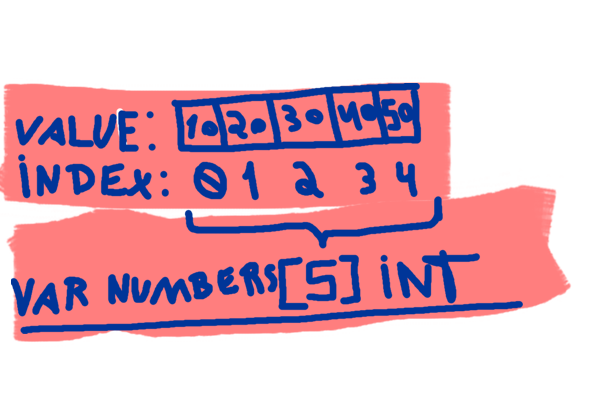 VALUE: 10 20 30 40 50
iNDEX: 0 1 2 3 4
VAR NUMBERS[5] iNT